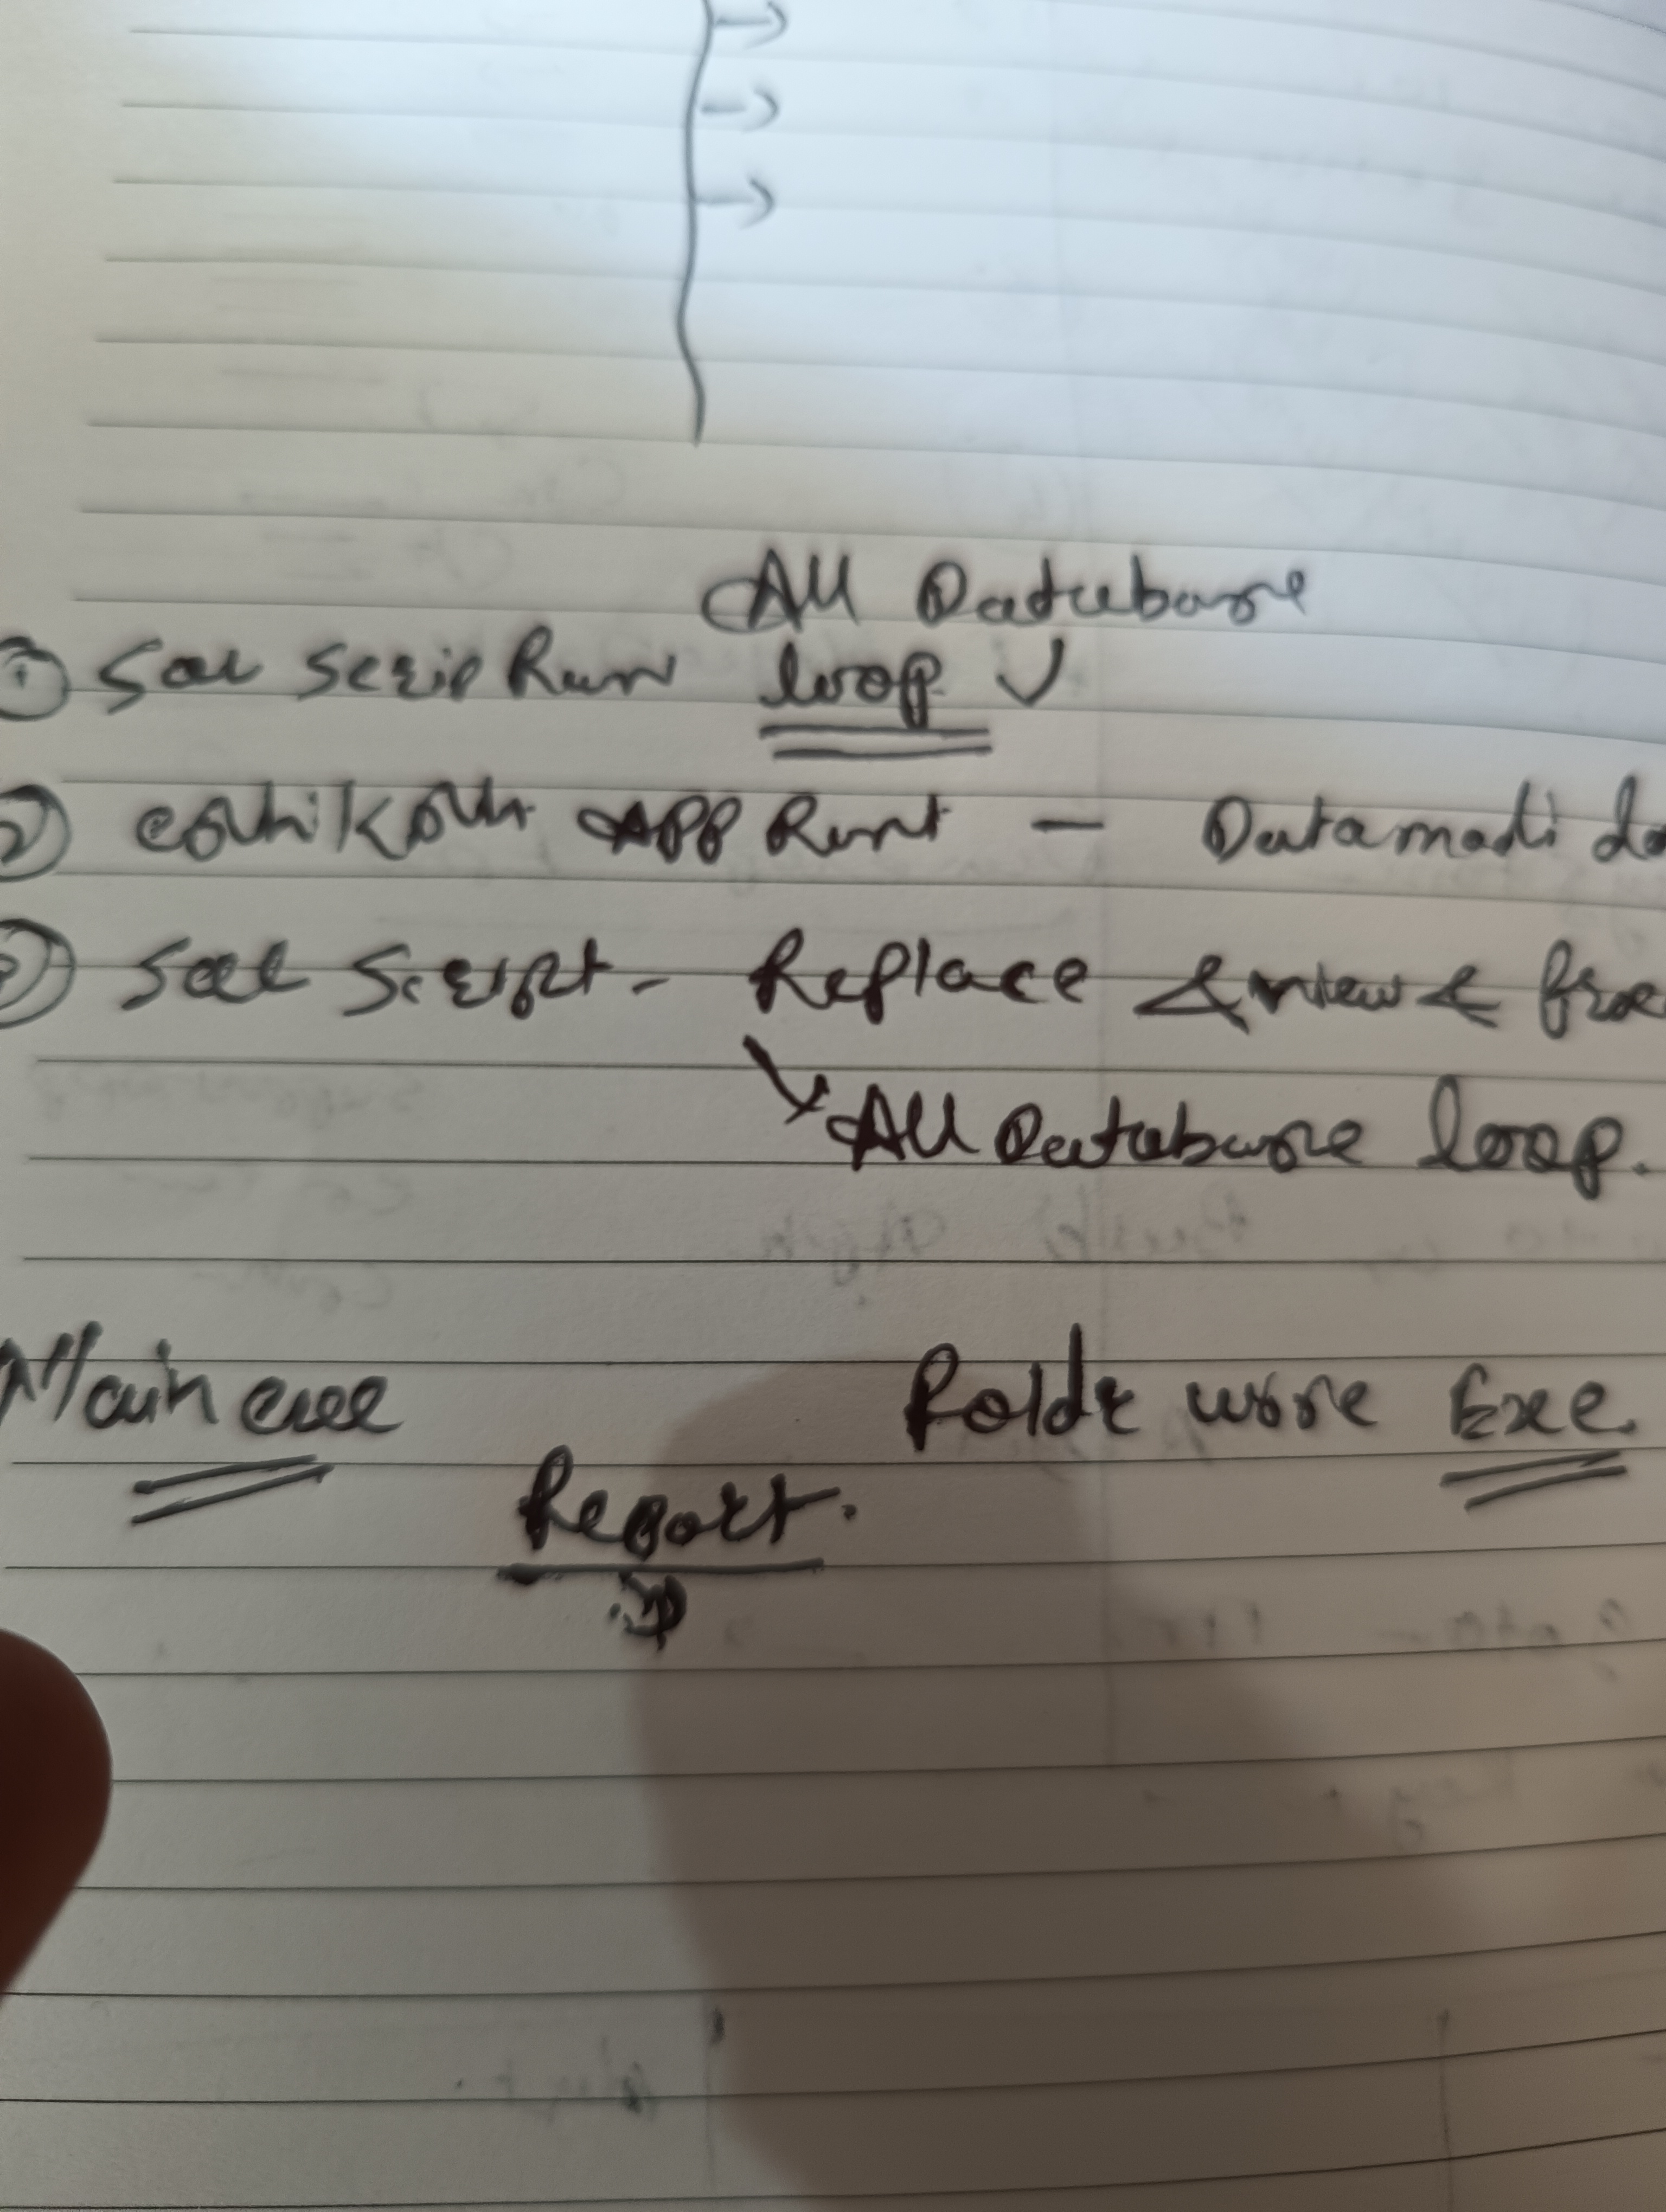 All Database
① Sql Script Run loop ✓
② App Run -
③ Sql Script - Replace & view &
All Database loop.
Main exe
Folde wise Exe.
Report.